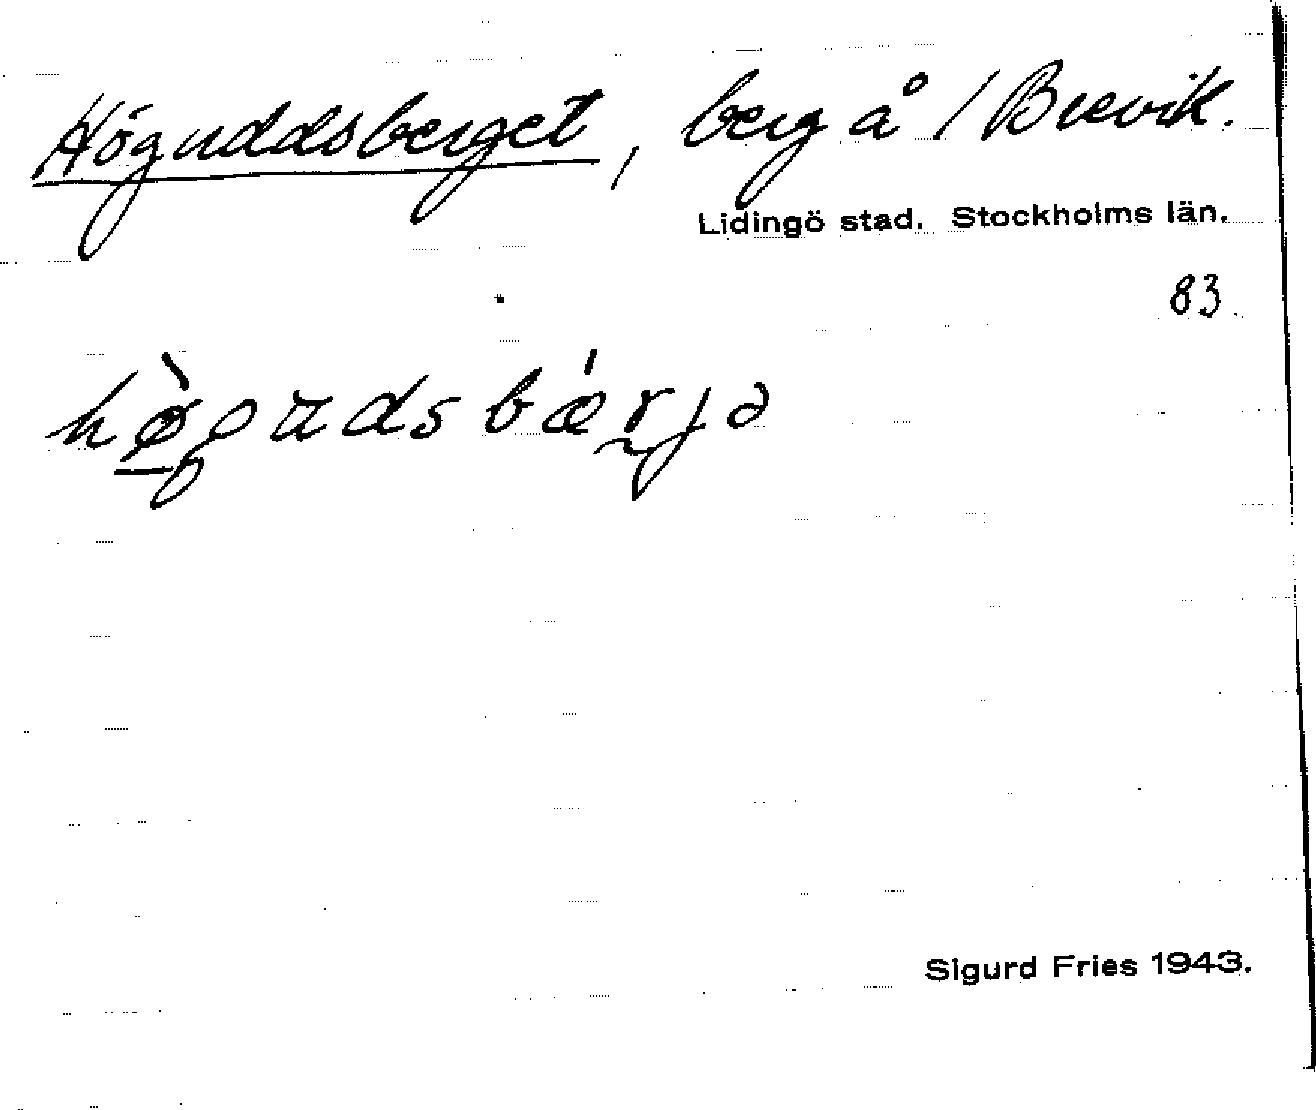 Höguddsberget, berg å / Brevik.
Lidingö stad. Stockholms län.
83.
hø̀gudsbærjə
Sigurd Fries 1943.